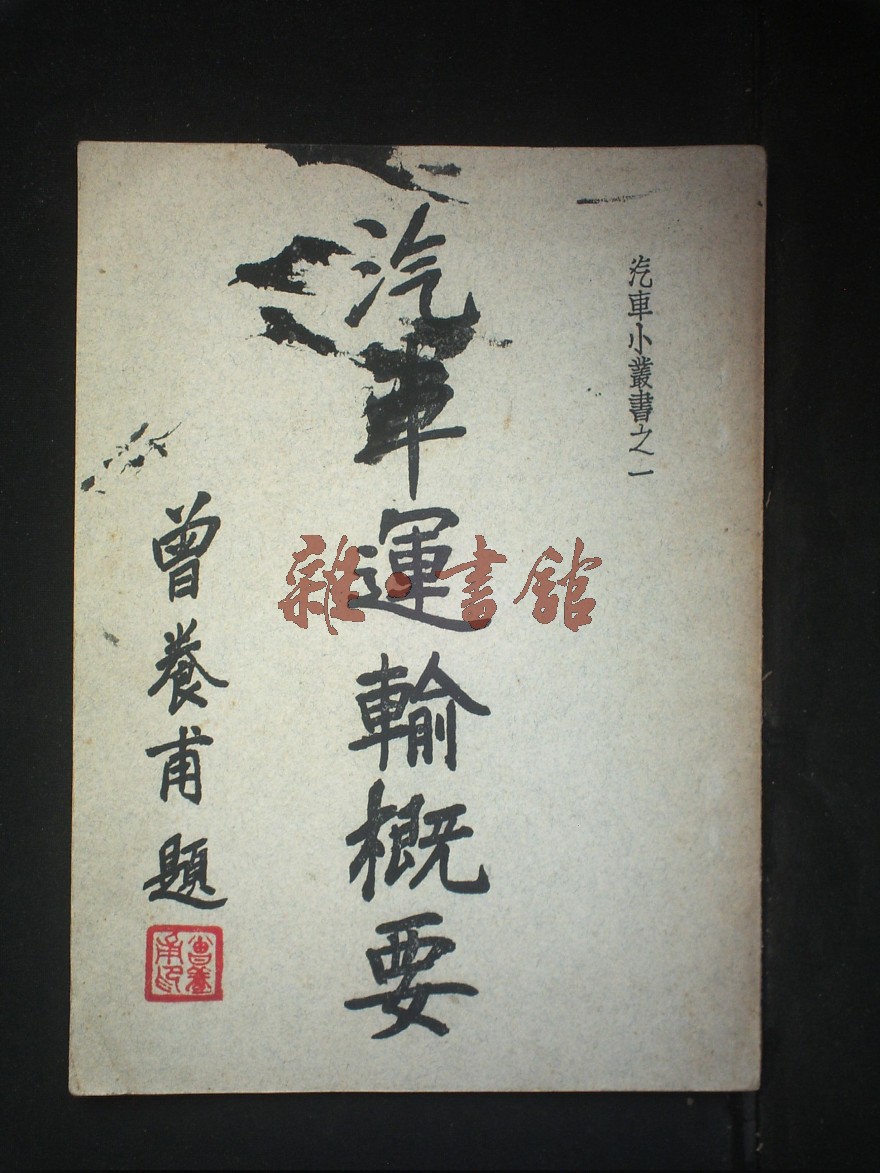 汽車小叢書之一
汽車運輸概要
曾養甫題
曾養甫印
雜·書館